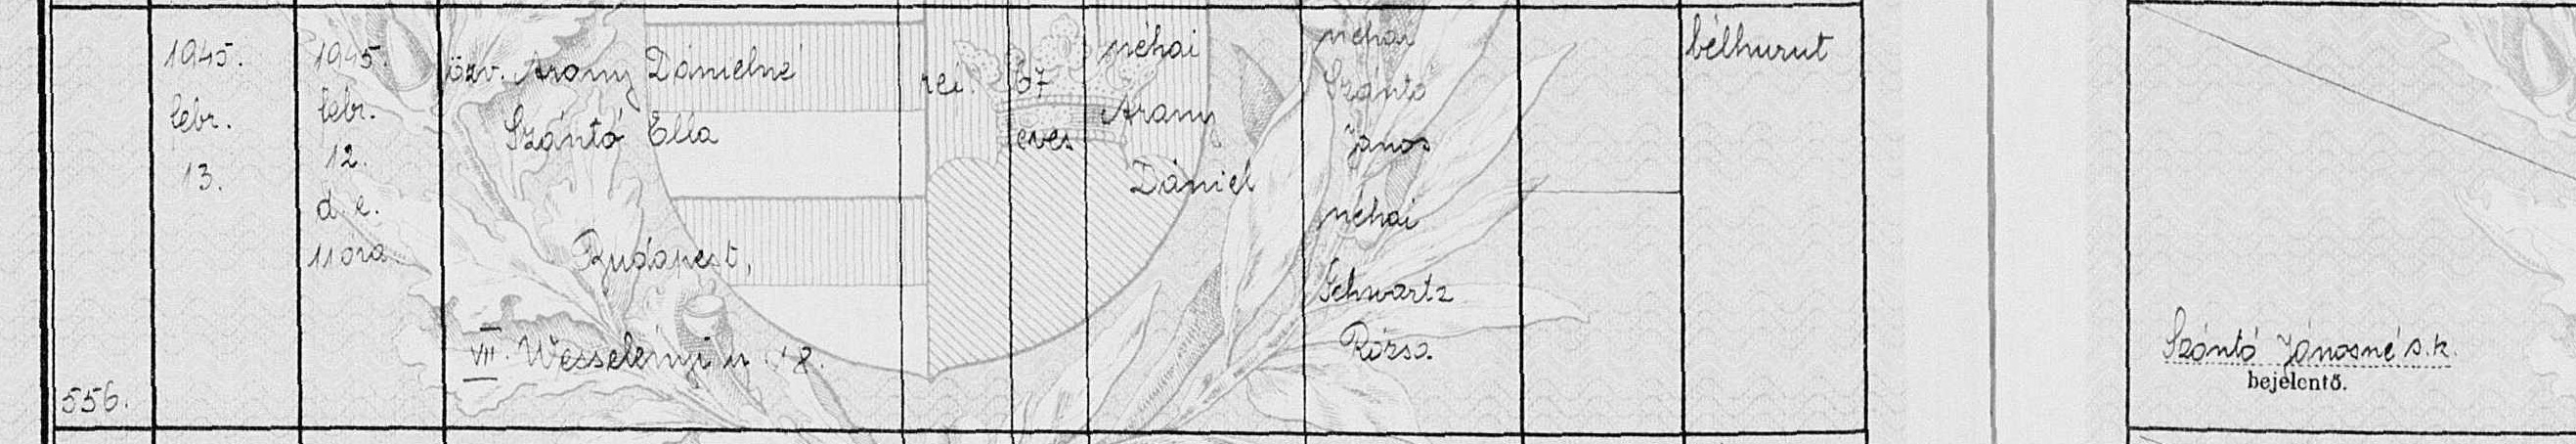 556.
1945.
febr.
13.
1945.
febr.
12.
d. e.
11 óra
özv. Arany Dánielné
Szántó Ella
Budapest,
VII. Wesselényi u. 18.
rei.
67
éves
néhai
Arany
Dániel
néhai
Szántó
János
néhai
Schwartz
Rózsa
bélhurut
Szántó Jánosné s.k.
bejelentő.